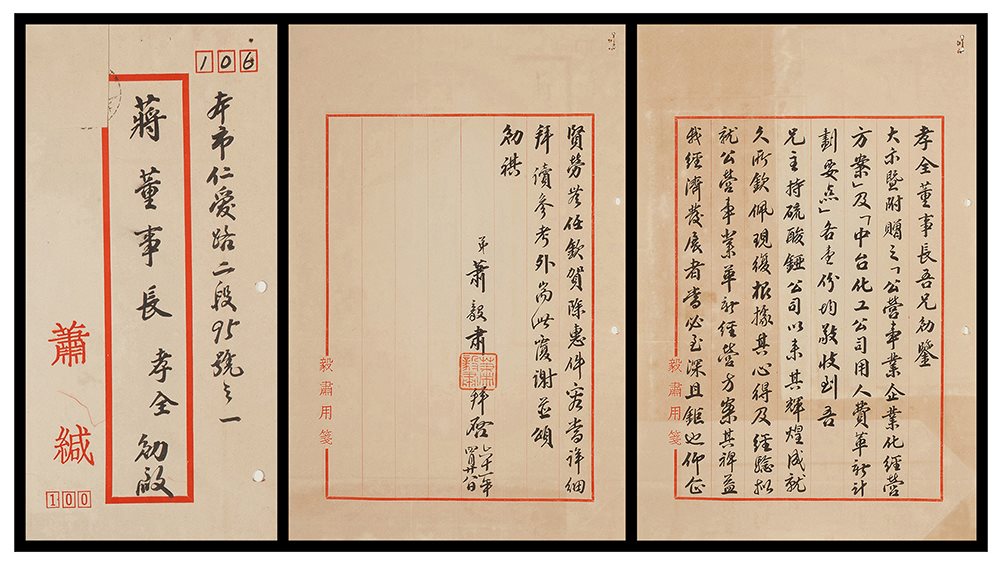 孝全董事長吾兄勛鑒
大示暨附贈之「公營事業企業化經營
方案」及「中台化工公司用人費革新計
劃要点」各壹份均敬收到吾
兄主持硫酸錏公司以來其輝煌成就
久所欽佩現復根據其心得及經驗擬
就公營事業革新經營方案其裨益
我經濟發展者當必至深且鉅也仰企
毅肅用箋
賢勞曷任欽賀除惠件容當詳細
拜讀參考外耑此覆謝並頌
勛祺
弟蕭毅肅拜啓 六十一年四月廿八日
毅肅用箋
106
本市仁愛路二段95號之一
蔣董事長 孝全 勛啟
蕭緘
100